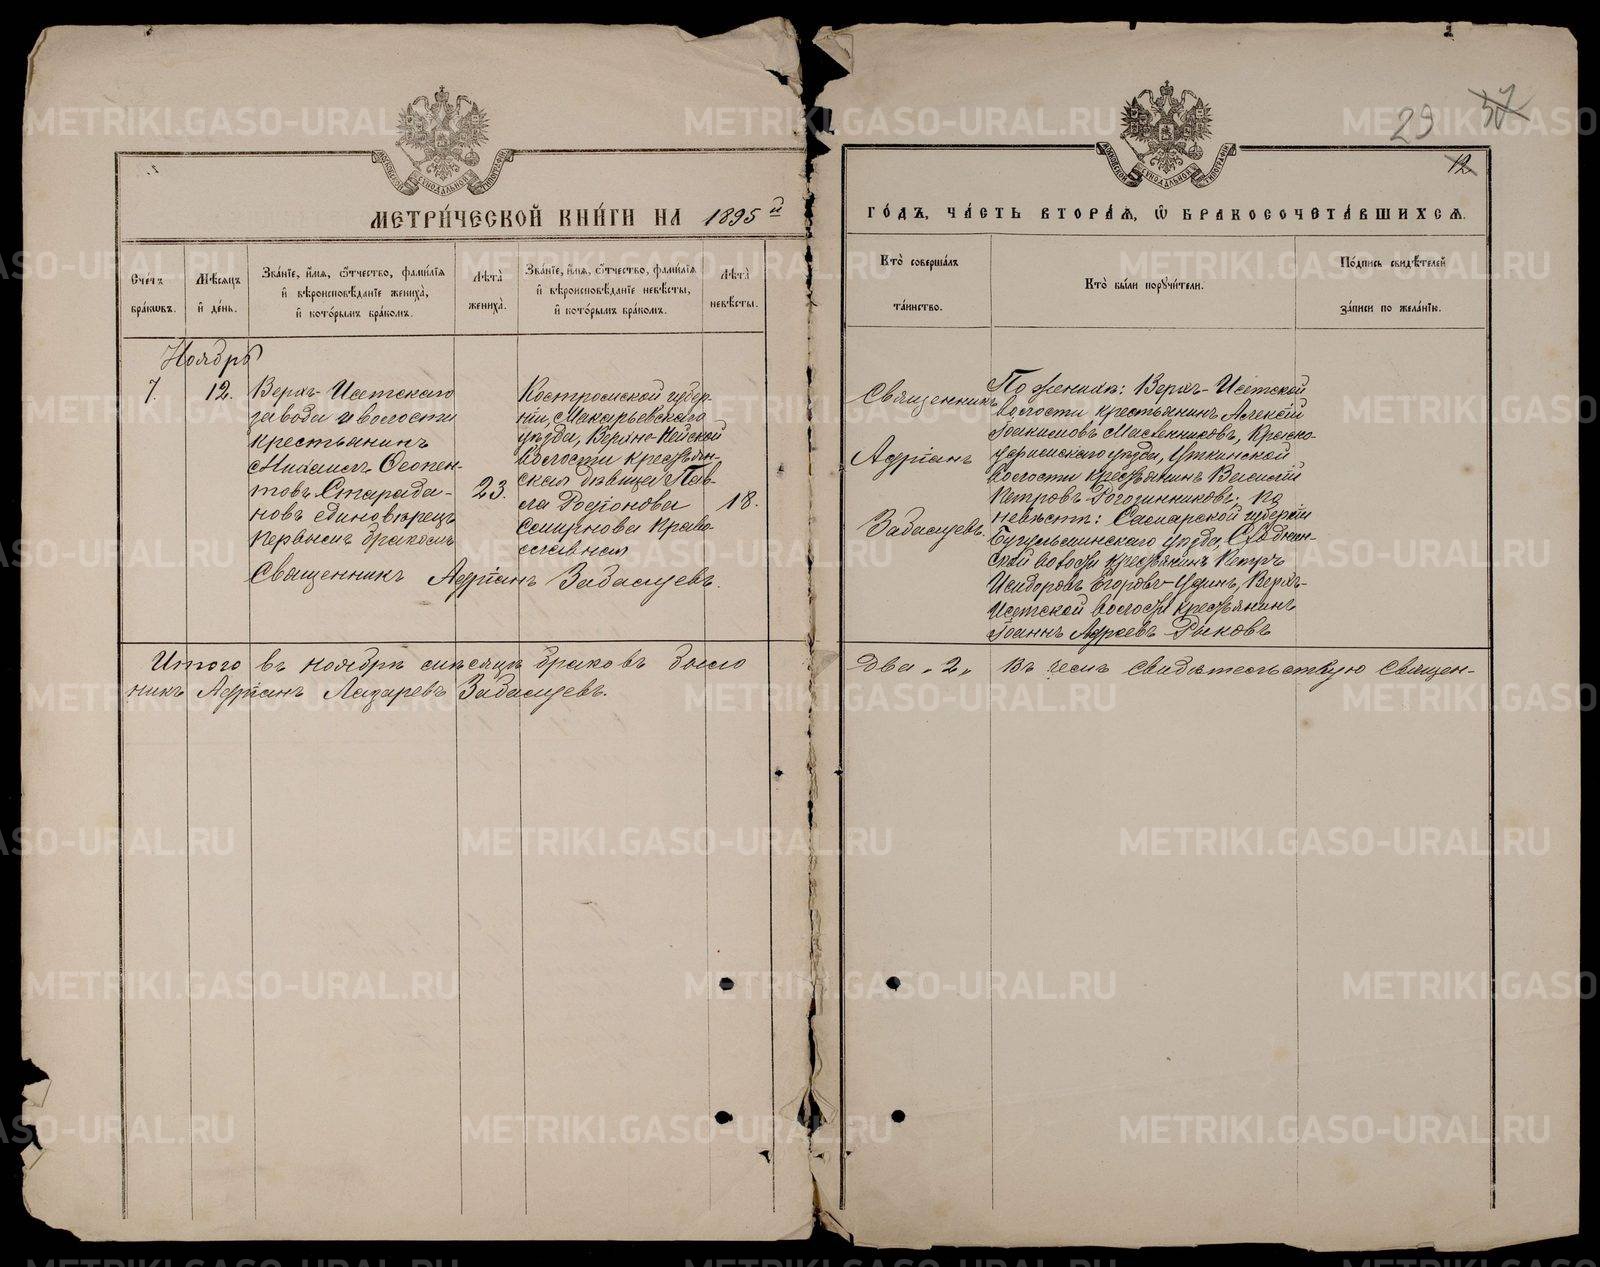 29 37
12
МЕТРИ́ЧЕСКОЙ КНИ́ГИ НА 1895 й
ГО́ДЪ, ЧА́СТЬ ВТОРА́Я, Ѿ БРАКОСОЧЕТА́ВШИХСЯ.
Сче́тъ бра́кѡвъ.
Мѣ́сяцъ и҆ де́нь.
Зва́нїе, и҆́мя, ѻ҆́тчество, фами́лїя и҆ вѣроисповѣ́данїе жениха̀, и҆ кото́рымъ бра́комъ.
Лѣ́та жениха̀.
Зва́нїе, и҆́мя, ѻ҆́тчество, фами́лїя и҆ вѣроисповѣ́данїе невѣ́сты, и҆ кото́рымъ бра́комъ.
Лѣ́та невѣ́сты.
Кто̀ соверша́лъ та́инство.
Кто̀ бы́ли порꙋчи́тели.
По́дпись свидѣ́телей за́писи по жела́нїю.
Ноябрь
7.
12.
Верхъ-Исетскаго
завода и волости
крестьянинъ
Михаилъ Ѳеопен-
товъ Старода-
новъ единовѣрецъ
первымъ бракомъ
23.
Костромской губер-
ніи, Макарьевскаго
уѣзда, Верхно-Нейской
волости крестьян-
ская дѣвица Пав-
ла Родіонова
Смирнова право-
славная
18.
Священникъ Адріанъ Забалуевъ.
Священникъ
Адріанъ
Забалуевъ.
По женихѣ: Верхъ-Исетской
волости крестьянинъ Алексій
Іоакимовъ Масленниковъ, Красно-
уфимскаго уѣзда, Уткинской
волости крестьянинъ Василій
Петровъ Рогозинниковъ; по
невѣстѣ: Самарской губерніи
Бугульминскаго уѣзда,
волости крестьянинъ Петръ
Исидоровъ Верхъ-
Исетской волости крестьянинъ
Іоаннъ Рыковъ
Итого въ ноябрѣ мѣсяцѣ браковъ было Два „2„ въ чемъ свидѣтельствую священ-
никъ Адріанъ Лазаревъ Забалуевъ.
METRIKI.GASO-URAL.RU